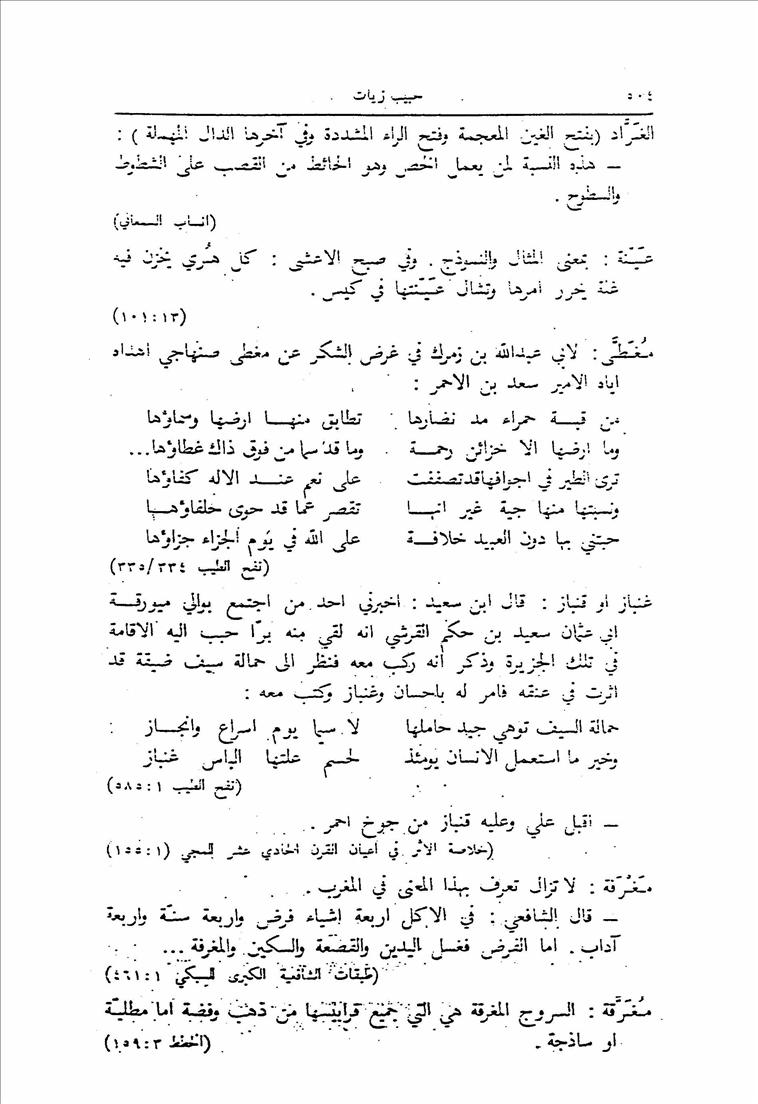 ٥٠٤ حبيب زيات
الغَرَّاد (بفتح الغين المعجمة وفتح الراء المشددة وفي آخرها الدال المهملة) :
– هذه النسبة لمن يعمل الخص وهو الحائط من القصب على الشطوط
والسطوح .
(انساب السمعاني)
عَيّنة : بمعنى المثال والنموذج . وفي صبح الاعشى : كل هُري يخزن فيه
غلة يحرر امرها وتشال عَيّنتها في كيس .
(١٠١:١٣)
مُغَطَّى : لابي عبدالله بن زمرك في غرض الشكر عن مغطى صنهاجي اهداه
اياه الامير سعد بن الاحمر :
من قبة حمراء مد نضارها تطابق منها ارضها وسماؤها
وما ارضها الا خزائن رحمة وما قد سما من فوق ذاك غطاؤها...
ترى الطير في اجوافها قد تصففت على نعم عند الاله كفاؤها
ونسبتها منها جية غير انها تقصر عما قد حوى خلفاؤها
حبتني بها دون العبيد خلافة على الله في يوم الجزاء جزاؤها
(نفح الطيب ٣٣٤/٣٣٥)
غنباز او قنباز : قال ابن سعيد : اخبرني احد من اجتمع بوالي ميورقة
ابي عثمان سعيد بن حكم القرشي انه لقي منه برًا حبب اليه الاقامة
في تلك الجزيرة وذكر أنه ركب معه فنظر الى حمالة سيف ضيقة قد
اثرت في عنقه فامر له باحسان وغنباز وكتب معه :
حمالة السيف توهي جيد حاملها لا سيما يوم اسراع وانجاز
وخير ما استعمل الانسان يومئذ لحسم علتها الباس غنباز
(نفح الطيب ١:٥٨٥)
– اقبل علي وعليه قنباز من جوخ احمر .
(خلاصة الاثر في اعيان القرن الحادي عشر للمحبي (١:١٥٥)
مَغرُفة : لا تزال تعرف بهذا المعنى في المغرب .
– قال الشافعي : في الاكل اربعة اشياء فرض واربعة سنّة واربعة
آداب . اما الفرض فغسل اليدين والقصعة والسكين والمغرفة ...
(طبقات الشافعية الكبرى للسبكي ١:٤٦١)
مُغَرَّقة : السروج المغرقة هي التي جميع قرابيسها من ذهب وفضة اما مطليّة
او ساذجة .
(الخطط ٣:١٥٩)